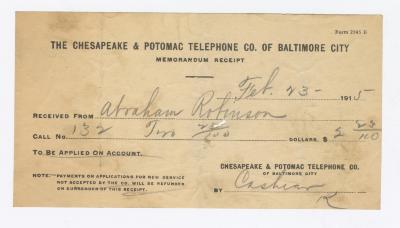 Form 2945 B
THE CHESAPEAKE & POTOMAC TELEPHONE CO. OF BALTIMORE CITY
MEMORANDUM RECEIPT
Feb. 23- 1915
RECEIVED FROM Abraham Robinson
CALL NO. 132 Two 22/100 DOLLARS, $ 2 22/100
TO BE APPLIED ON ACCOUNT.
CHESAPEAKE & POTOMAC TELEPHONE CO.
OF BALTIMORE CITY
NOTE: PAYMENTS OR APPLICATIONS FOR NEW SERVICE
NOT ACCEPTED BY THE CO. WILL BE REFUNDED
ON SURRENDER OF THIS RECEIPT.
BY Cashier
R